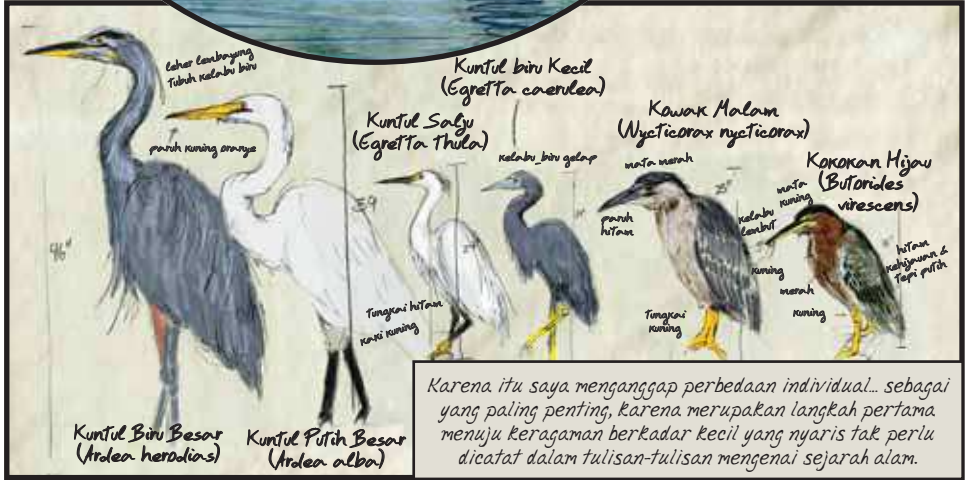 leher lembayung
tubuh kelabu biru
paruh kuning oranye
46"
Kuntul Biru Besar
(Ardea herodias)
39
Kuntul Putih Besar
(Ardea alba)
Kuntul Salju
(Egretta thula)
tungkai hitam
kaki kuning
Kuntul biru Kecil
(Egretta caerulea)
kelabu_biru gelap
Kowak Malam
(Nycticorax nycticorax)
mata merah
paruh
hitam
kelabu
lembut
tungkai
kuning
Kokokan Hijau
(Butorides
virescens)
mata
kuning
kuning
merah
kuning
hitam
kehijauan &
tepi putih
Karena itu saya menganggap perbedaan individual... sebagai
yang paling penting, karena merupakan langkah pertama
menuju keragaman berkadar kecil yang nyaris tak perlu
dicatat dalam tulisan-tulisan mengenai sejarah alam.